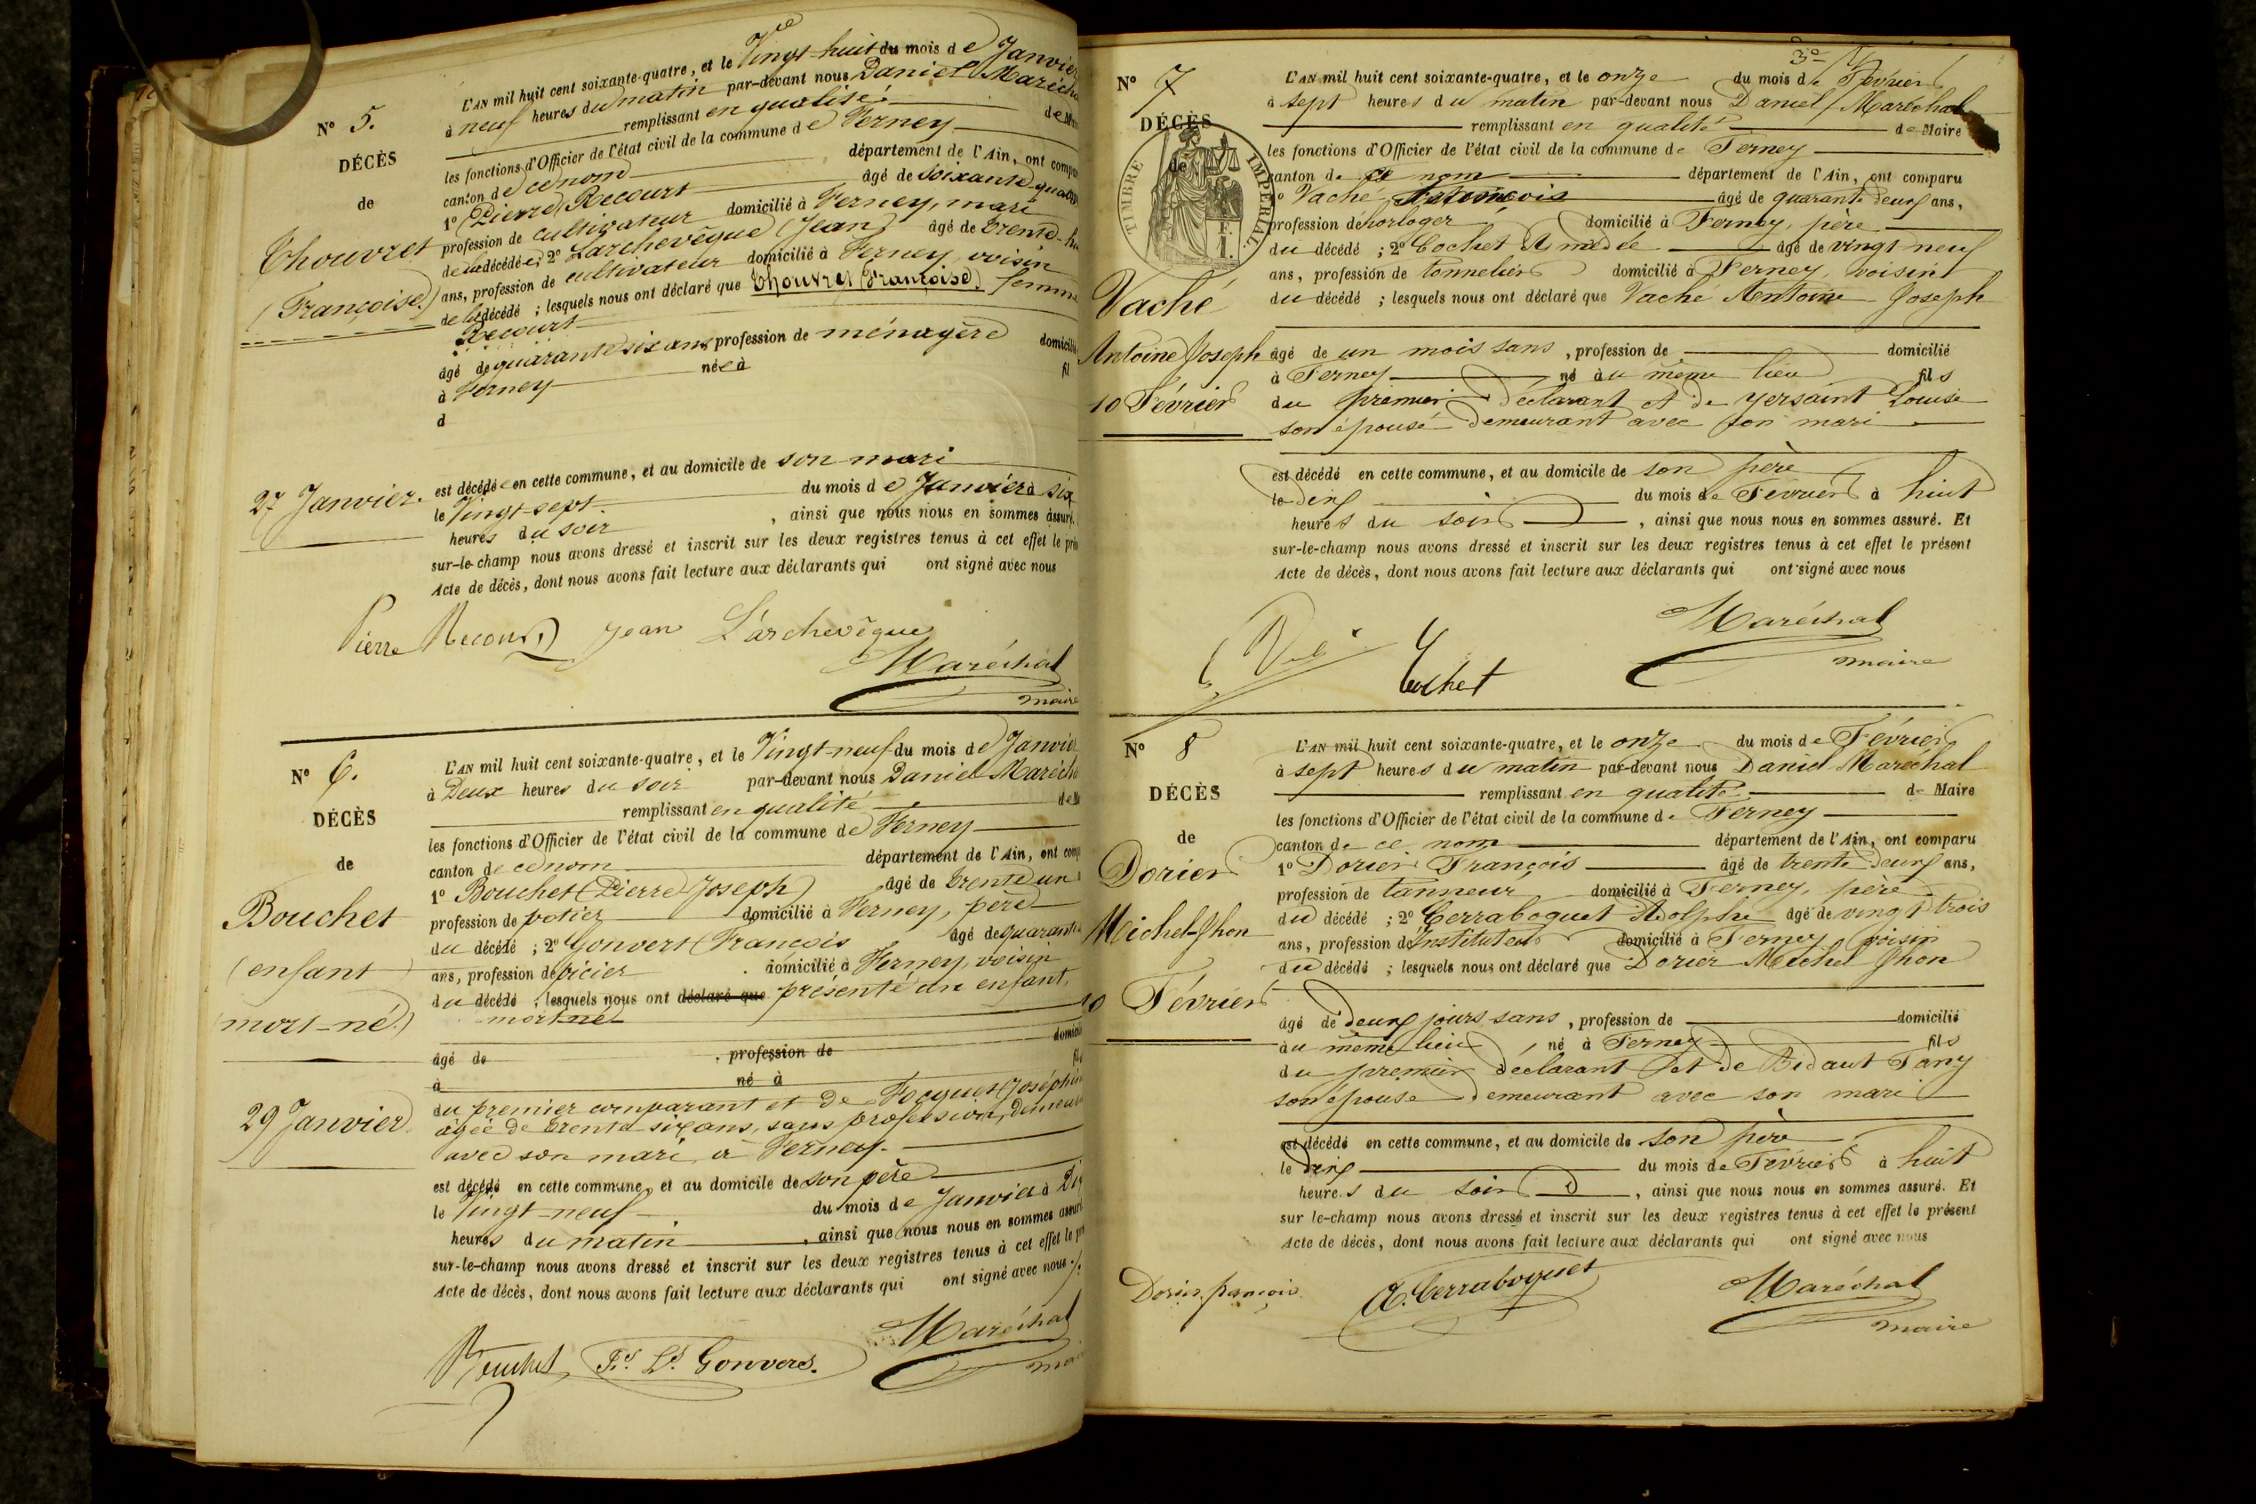 N° 5.
DÉCÈS
de
Thouvret
(Françoise)
27 Janvier.
L'AN mil huit cent soixante-quatre, et le Vingt-huit du mois de Janvier
à neuf heures du matin par-devant nous Daniel Marécha
remplissant en qualité de
les fonctions d'Officier de l'état civil de la commune de Ferney
canton de ce nom département de l'Ain, ont compa
1° Pierre Recourt âgé de soixante quatre
profession de cultivateur domicilié à Ferney, mari
de la décédée; 2° Larchevêque (Jean) âgé de trente-hu
ans, profession de cultivateur domicilié à Ferney, voisin
de la décédé ; lesquels nous ont déclaré que Thouvret (Françoise) femme
Recourt
âgé de quarante six ans profession de ménagère domicilié
à Ferney née à fil
d
est décédée en cette commune, et au domicile de son mari
le Vingt-sept du mois de Janvier à six
heures du soir , ainsi que nous nous en sommes assuré.
sur-le-champ nous avons dressé et inscrit sur les deux registres tenus à cet effet le pré
Acte de décès, dont nous avons fait lecture aux déclarants qui ont signé avec nous
Pierre Recourt Jean L'archevêque
Maréchal
maire
N° 6.
DÉCÈS
de
Bouchet
(enfant
mort-né)
29 Janvier
L'AN mil huit cent soixante-quatre, et le Vingt-neuf du mois de Janvie
à Deux heures du soir par-devant nous Daniel Marécha
remplissant en qualité de M
les fonctions d'Officier de l'état civil de la commune de Ferney
canton de ce nom département de l'Ain, ont comp
1° Bouchet (Pierre Joseph) âgé de trente un
profession de potier domicilié à Ferney, père
du décédé ; 2° Gonvers (François âgé de quarante
ans, profession d'épicier domicilié à Ferney, voisin
du décédé ; lesquels nous ont déclaré que présenté un enfant,
mort-né
âgé de , profession de domicilié
à né à fil
du premier comparant et de Focquet Joséphine
âgée de trente six ans, sans profession, demeura
avec son mari, à Ferney.
est décédé en cette commune, et au domicile de son père
le Vingt-neuf du mois de Janvier à Dix
heures du matin , ainsi que nous nous en sommes assuré
sur-le-champ nous avons dressé et inscrit sur les deux registres tenus à cet effet le pré
Acte de décès, dont nous avons fait lecture aux déclarants qui ont signé avec nous
Maréchal
Bouchet Fs Ls Gonvers. mai
3°
N° 7
DÉCÈS
de
TIMBRE IMPÉRIAL.
F.
1.
Vaché
Antoine Joseph
10 Février
L'AN mil huit cent soixante-quatre, et le onze du mois de Février
à sept heures du matin par-devant nous Daniel Maréchal
remplissant en qualité de Maire
les fonctions d'Officier de l'état civil de la commune de Ferney
canton de ce nom département de l'Ain, ont comparu
1° Vaché François âgé de quarante deux ans,
profession de horloger domicilié à Ferney, père
du décédé ; 2° Cochet Amédée âgé de vingt neuf
ans, profession de tonnelier domicilié à Ferney, voisin
du décédé ; lesquels nous ont déclaré que Vaché Antoine Joseph
âgé de un mois sans , profession de domicilié
à Ferney né au même lieu fils
du premier déclarant et de Yersaint Louise
son épouse demeurant avec son mari
est décédé en cette commune, et au domicile de son père
le dix du mois de Février à huit
heures du soir , ainsi que nous nous en sommes assuré. Et
sur-le-champ nous avons dressé et inscrit sur les deux registres tenus à cet effet le présent
Acte de décès, dont nous avons fait lecture aux déclarants qui ont signé avec nous
Maréchal
maire
Cochet
N° 8
DÉCÈS
de
Dorier
Michel-Jhon
10 Février
L'AN mil huit cent soixante-quatre, et le onze du mois de Février
à sept heures du matin par-devant nous Daniel Maréchal
remplissant en qualité de Maire
les fonctions d'Officier de l'état civil de la commune de Ferney
canton de ce nom département de l'Ain, ont comparu
1° Dorier François âgé de trente deux ans,
profession de tanneur domicilié à Ferney, père
du décédé ; 2° Cerraboguet Adolphe âgé de vingt trois
ans, profession d'instituteur domicilié à Ferney voisin
du décédé ; lesquels nous ont déclaré que Dorier Michel Jhon
âgé de deux jours sans , profession de domicilié
au même lieu , né à Ferney fils
du premier déclarant et de Bidaut Fany
son épouse demeurant avec son mari
est décédé en cette commune, et au domicile de son père
le dix du mois de Février à huit
heures du soir , ainsi que nous nous en sommes assuré. Et
sur le-champ nous avons dressé et inscrit sur les deux registres tenus à cet effet le présent
Acte de décès, dont nous avons fait lecture aux déclarants qui ont signé avec nous
Dorier françois A. Cerraboguet Maréchal
maire